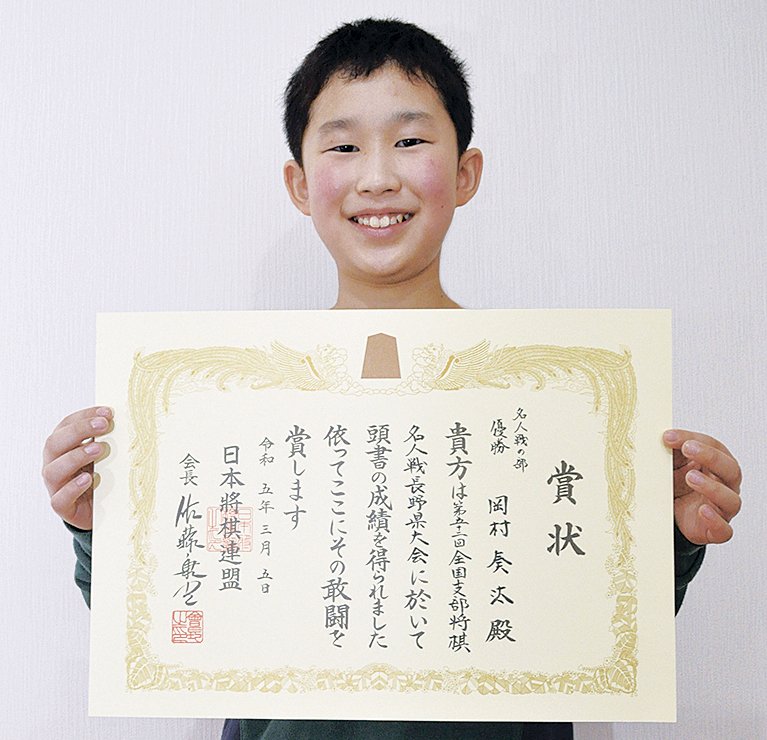 賞状
名人戦の部
優勝
岡村奏汰殿
貴方は第五十三回全国支部将棋
名人戦長野県大会に於いて
頭書の成績を得られました
依ってここにその敢闘を
賞します
令和五年三月五日
日本將棋連盟
会長 佐藤康光